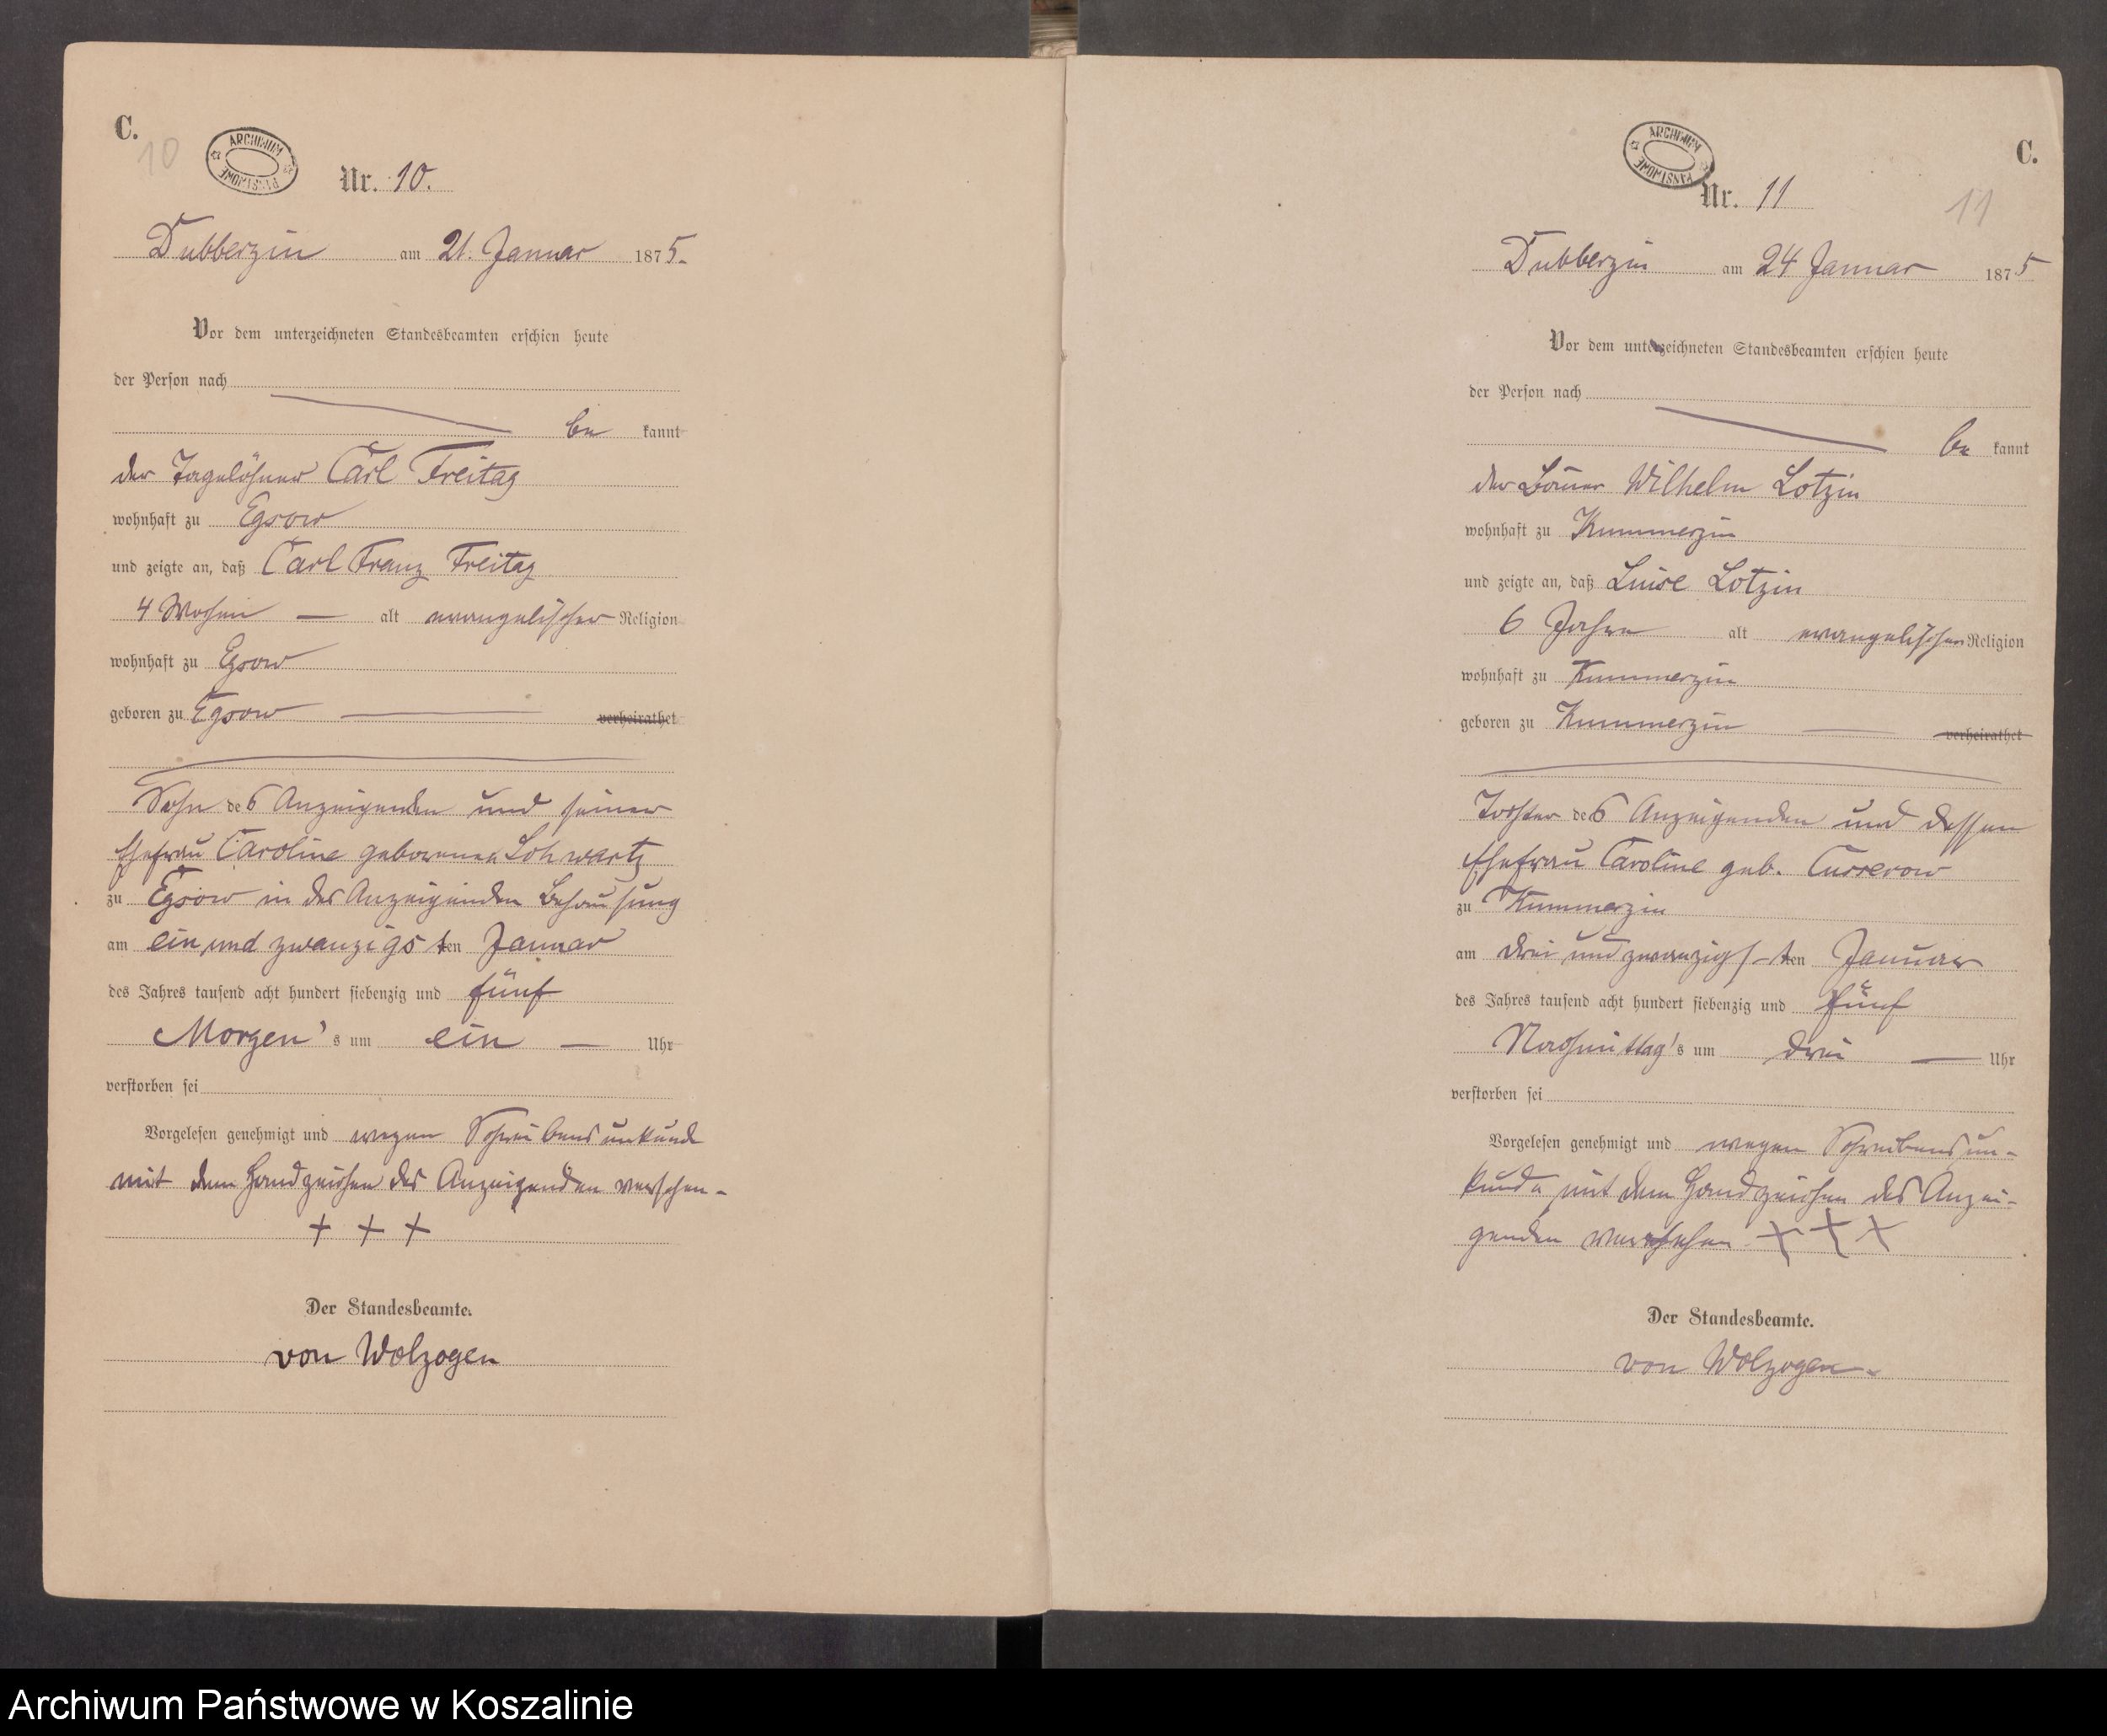 C.
10
ARCHIWUM PAŃSTWOWE
Nr. 10.
Dubberzin am 21. Januar 1875.
Vor dem unterzeichneten Standesbeamten erschien heute
der Person nach
be kannt
der Tagelöhner Carl Freitag
wohnhaft zu Egsow
und zeigte an, daß Carl Franz Freitag
4 Wochen — alt evangelischer Religion
wohnhaft zu Egsow
geboren zu Egsow — verheirathet
Sohn des Anzeigenden und seiner
Ehefrau Caroline geborenen Lohwartz
zu Egsow in des Anzeigenden Behausung
am ein und zwanzigsten Januar
des Jahres tausend acht hundert siebenzig und fünf
Morgen's um ein — Uhr
verstorben sei
Vorgelesen genehmigt und wegen Schreibensunkunde
mit dem Handzeichen des Anzeigenden versehen -
+ + +
Der Standesbeamte.
von Wolzogen
C.
11
ARCHIWUM PAŃSTWOWE
Nr. 11
Dubberzin am 24 Januar 1875
Vor dem unterzeichneten Standesbeamten erschien heute
der Person nach
be kannt
der Bauer Wilhelm Lotzin
wohnhaft zu Kummerzin
und zeigte an, daß Luise Lotzin
6 Jahre alt evangelischer Religion
wohnhaft zu Kummerzin
geboren zu Kummerzin — verheirathet
Tochter des Anzeigenden und dessen
Ehefrau Caroline geb. Cusserow
zu Kummerzin
am drei und zwanzigsten Januar
des Jahres tausend acht hundert siebenzig und fünf
Nachmittag's um drei — Uhr
verstorben sei
Vorgelesen genehmigt und wegen Schreibensun-
kunde mit dem Handzeichen des Anzei-
genden versehen + + +
Der Standesbeamte.
von Wolzogen
Archiwum Państwowe w Koszalinie